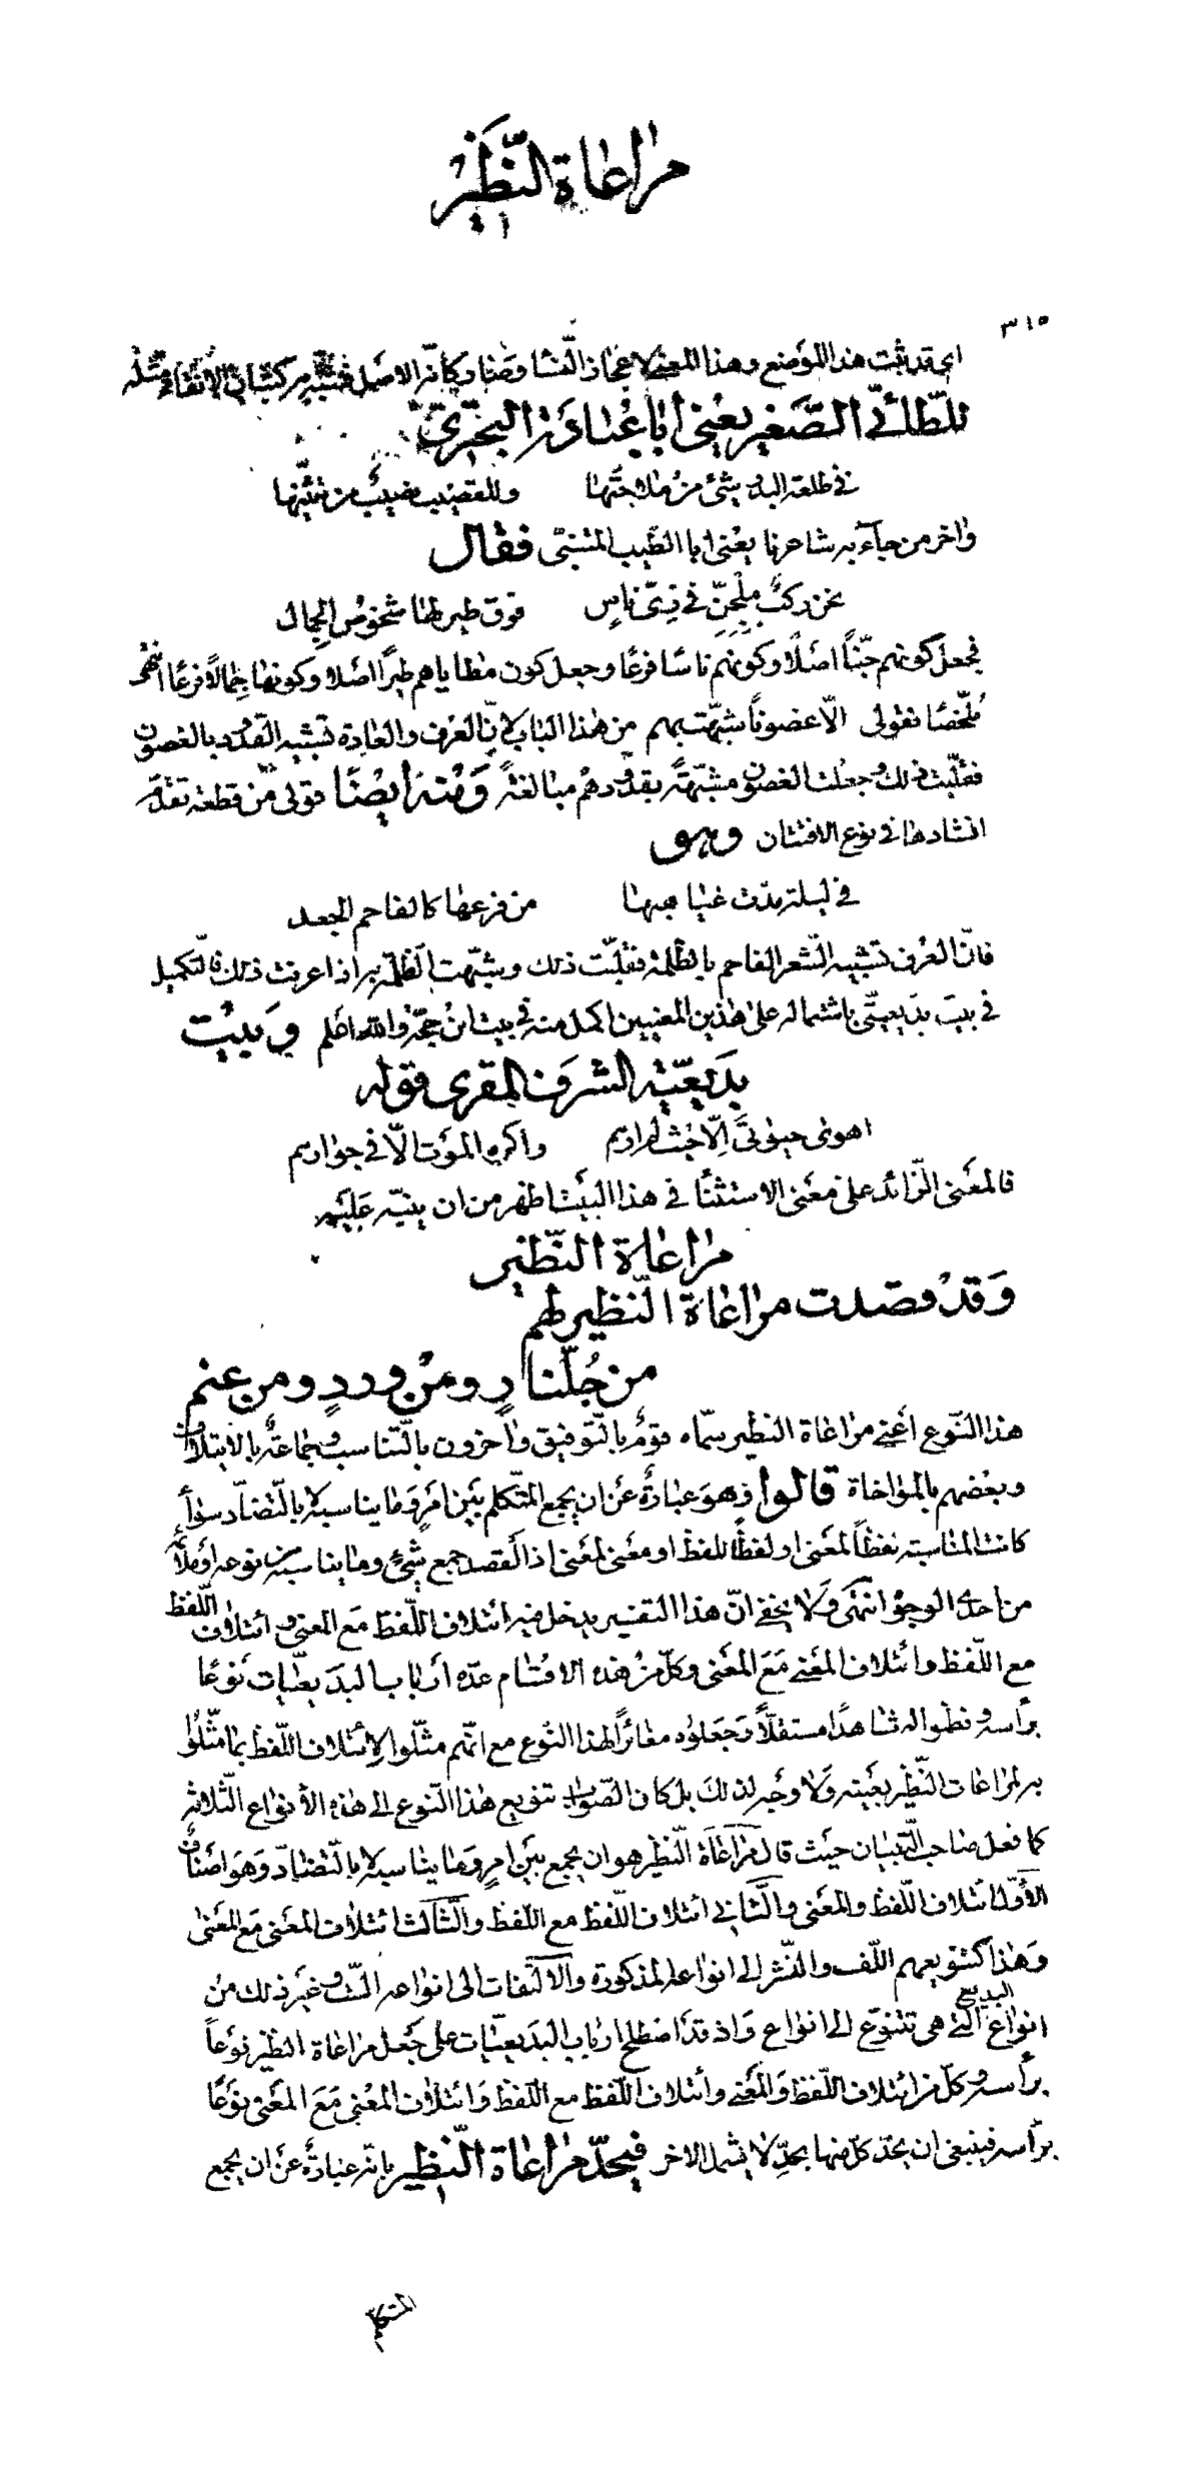 مراعاة النّظير
٣١٥
اى قد ثبت هذا الموضع وهذا المعنى لاعجاز النّسا وصار كانّه الاصل فشبّه به كثبان الانقاء ومثله
للطّائىّ الصّغير يعنى أبا عُبادة البحترىّ
فى طلعة البدر شئ من ملاحتها وللقضيب نصيب من تثنّيها
واخر من جآء به شاعرنا يعنى ابا الطّيب المتنبّى فقال
نحن ركبٌ ملجنّ فى زىّ ناسٍ فوق طير لها شخوصُ الجمال
فجعل كونهم جنّاً اصلاً وكونهم ناسًا فرعًا وجعل كون مطاياهم طيرًا اصلا وكونها جمالاً فرعًا انتهى
ملخّصًا فقولى الاّ غصوناً شبّهت بهم من هذا الباب لانّ العرف والعادة تشبيه القدود بالغصون
فقلبت ذلك وجعلت الغصون مشبّهةً بقدودهم مبالغةً ومنه أيضًا قولى من قطعة تقدّم
انشادها فى نوع الافتنان وهو
فى ليلة مدّت غياهبها من فرعها كالفاحم الجعد
فانّ العرف تشبيه الشّعر الفاحم بالظلمة فقلبت ذلك وشبّهت الظّلمة به اذا عرفت ذلك فالتكميل
فى بيت بديعيتى باشتماله على هذين المعنيين اكمل منه فى بيت ابن حجّة والله اعلم وبيت
بديعيّة الشرف المقرى قوله
اهوى حيوتى الّا حيث لم ارهم واكره الموت الّا فى جوارهم
فالمعنى الزّائد على معنى الاستثنا فى هذا البيت اظهر من ان ينبّه عليه
مراعاة النّظير
وقد قصدت مراعاة النّظير لهم
من جُلّنارٍ ومن وردٍ ومن عنم
هذا النّوع أعنى مراعاة النظير سمّاه قومٌ بالتّوفيق واخرون بالتّناسب وجماعةٌ بالايتلاف
وبعضهم بالمؤاخاة قالوا وهو عبارةٌ عن ان يجمع المتكلّم بين امرٍ وما يناسبه لا بالتّضادّ سوآء
كانت المناسبة لفظاً لمعنى او لفظًا للفظ او معنى لمعنى اذ القصد جمع شئ وما يناسبه من نوعه أو ملآئمه
من احدى الوجوه انتهى ولا يخفى انّ هذا التفسير يدخل فيه ائتلاف اللّفظ مع المعنى وائتلاف اللّفظ
مع اللّفظ وائتلاف المعنى مع المعنى وكلّ من هذه الاقسام عدّه أرباب البديعيّات نوعًا
برأسه ونظموا له شاهدًا مستقلاًّ وجعلوه مغائرًا لهذا النّوع مع انّهم مثّلوا لائتلاف اللّفظ بما مثّلوا
به لمراعات النّظير بعينه ولا وجه لذلك بل كان الصّواب تنويع هذا النّوع الى هذه الأنواع الثّلاثة
كما فعل صاحب التّبيان حيث قال مراعاة النّظير هو ان يجمع بين امرٍ وما يناسبه لا بالتّضادّ وهو اصنافٌ
الأوّل ائتلاف اللّفظ والمعنى والثّانى ائتلاف اللّفظ مع اللّفظ والثّالث ائتلاف المعنى مع المعنى
وهذا كتنويعهم اللّف والنّشر الى انواعه المذكورة والالتفات الى انواعه الستّ وغير ذلك من
انواع البديع الّتى هى تتنوّع الى انواع واذ قد اصطلح ارباب البديعيّات على جعل مراعاة النظير نوعاً
برأسه وكلّ من ائتلاف اللّفظ والمعنى وائتلاف اللّفظ مع اللّفظ وائتلاف المعنى مع المعنى نوعًا
برأسه فينبغى ان يحدّ كلّ منها بحدٍّ لا يشمل الاخر فيحدّ مراعاة النّظير بانّه عبارةٌ عن ان يجمع
المتكلّم